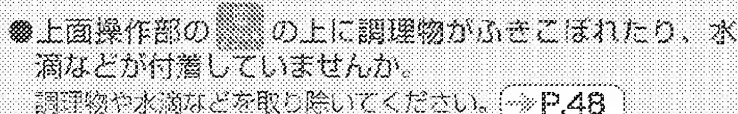 ●上面操作部の の上に調理物がふきこぼれたり、水
滴などが付着していませんか。
調理物や水滴などを取り除いてください。→P.48